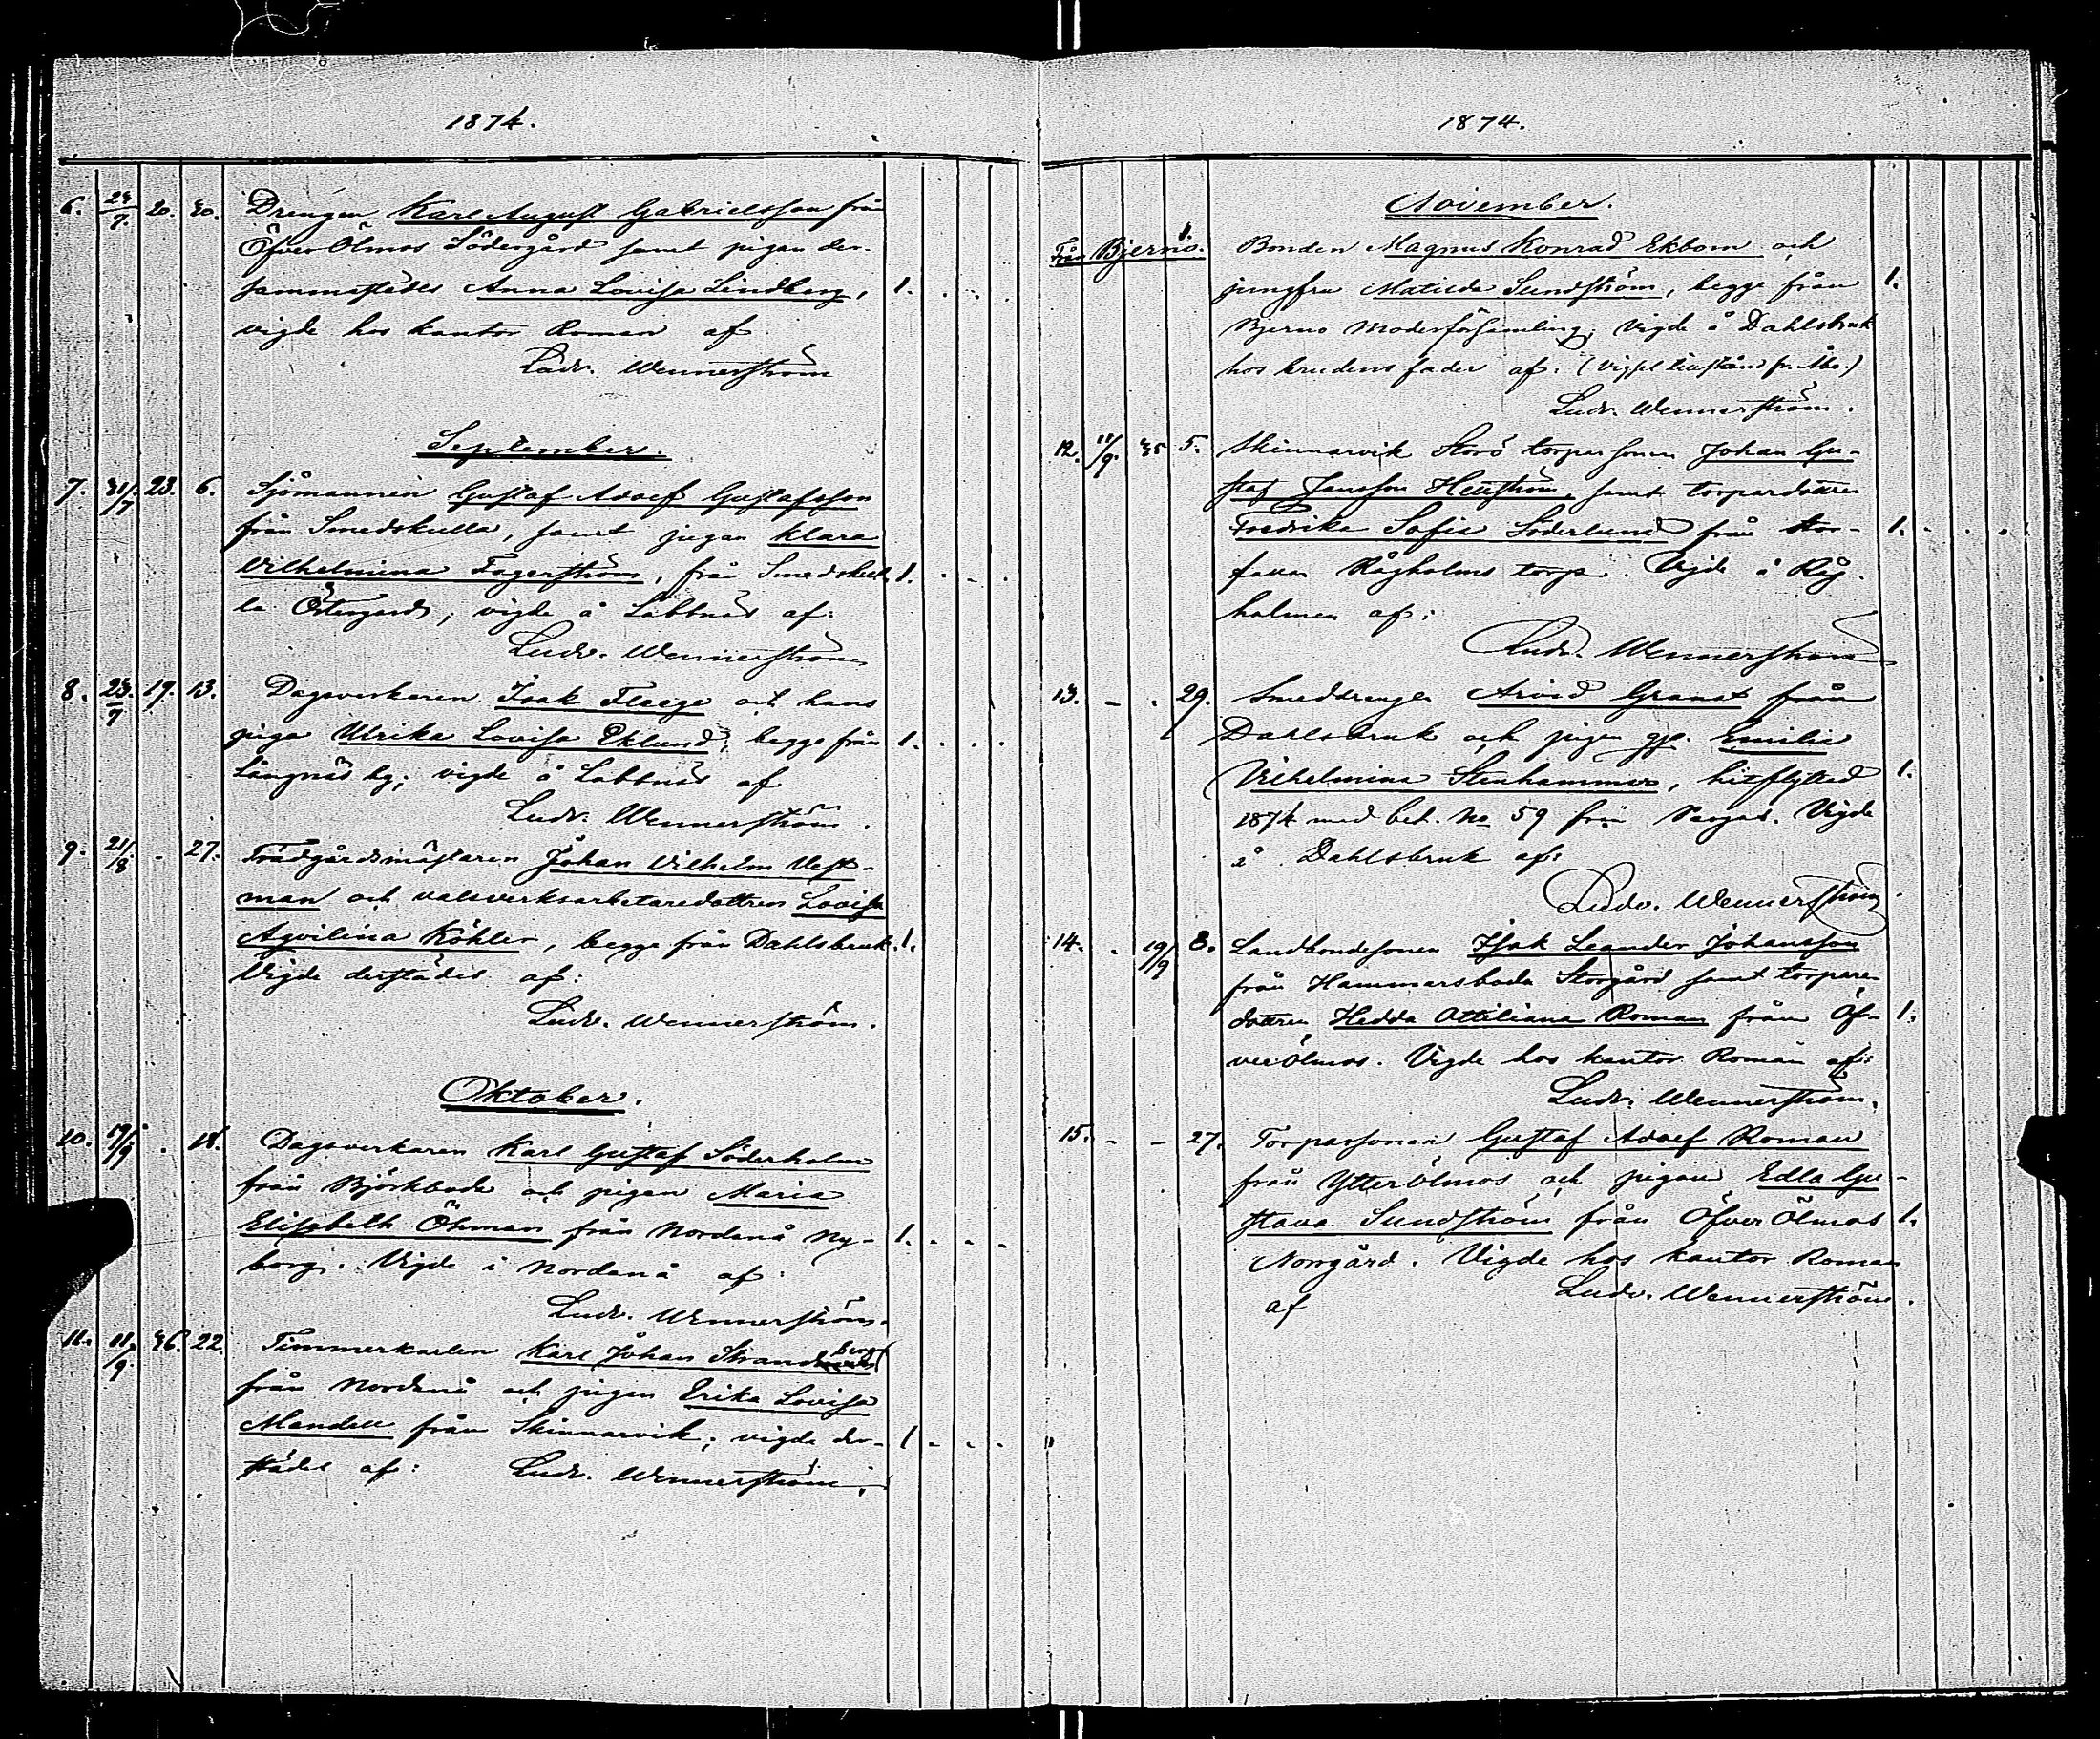 1874.
6. 24/7. 20. 30. Drengen Karl August Gabrielsson från
Öfver Ölmos Södergård samt pigan der-
sammastädes Anna Lovisa Lindberg, 1.
vigde hos kantor Roman af
Ludv. Wennerström
September.
7. 31/7 23. 6. Sjömannen Gustaf Adolf Gustafsson
från Smedskulla, samt pigan Klara
Vilhelmina Fagerström, från Smedskul- 1.
la Östergård; vigde å Labbnäs af:
Ludv. Wennerström
8. 23./7 19. 13. Dagsverkaren Isak Fleege och hans
piga Ulrika Lovisa Eklund, begge från 1.
Långnäs by; vigde å Labbnäs af
Ludv. Wennerström.
9. 21/8 - 27. Trädgårdsmästaren Johan Vilhelm Vest-
man och valsverksarbetaredottren Lovisa
Aqvilina Köhler, begge från Dahlsbruk. 1.
Vigde derstädes af:
Ludv. Wennerström.
Oktober.
10. 19/9 . 18. Dagsverkaren Karl Gustaf Söderholm
från Björkboda och pigan Maria
Elisabeth Öhman från Nordanå Ny- 1.
borg. Vigde i Nordanå af:
Ludv. Wennerström.
11. 11/9. 36. 22. Timmerkarlen Karl Johan Strandberg
från Nordanå och pigan Erika Lovisa
Mandell från Skinnarvik; vigde der- 1
städes af: Ludv. Wennerström.
1874.
November.
Från Bjerno. 1. Bonden Magnus Konrad Ekbom och
jungfru Matilda Sundström, begge från 1.
Bjerno Moderförsamling; Vigde å Dahlsbruk
hos brudens fader af: (Vigsel tillstånd fr. Åbo.)
Ludv. Wennerström.
12. 11/9. 35 5. Skinnarvik Storö torparsonen Johan Gu-
staf Jansson Hellström, samt torpardottren
Fredrika Sofia Söderlund från Stor- 1.
Rågholms torp. Vigde å Råg-
holmen af:
Ludv. Wennerström
13. - . 29. Smeddrengen Arvid Granat från
Dahlsbruk och pigan Emilia
Vilhelmina Stenhammar, hitflyttad 1.
1874 med bet. No 59 från Pargas. Vigde
å Dahlsbruk af:
Ludv. Wennerström
14. . 19/9 8. Landbondesonen Isak Leander Johansson
från Hammarsboda Storgård samt torpare
dottren Hedda Ottiliana Roman från Öf- 1.
ver Ölmos. Vigde hos kantor Roman af:
Ludv. Wennerström.
15. - - 27. Torparsonen Gustaf Adolf Roman
från Ytter Ölmos och pigan Edla Gu-
stava Sundström från Öfver Ölmos 1.
Norrgård. Vigde hos kantor Roman
af Ludv. Wennerström.